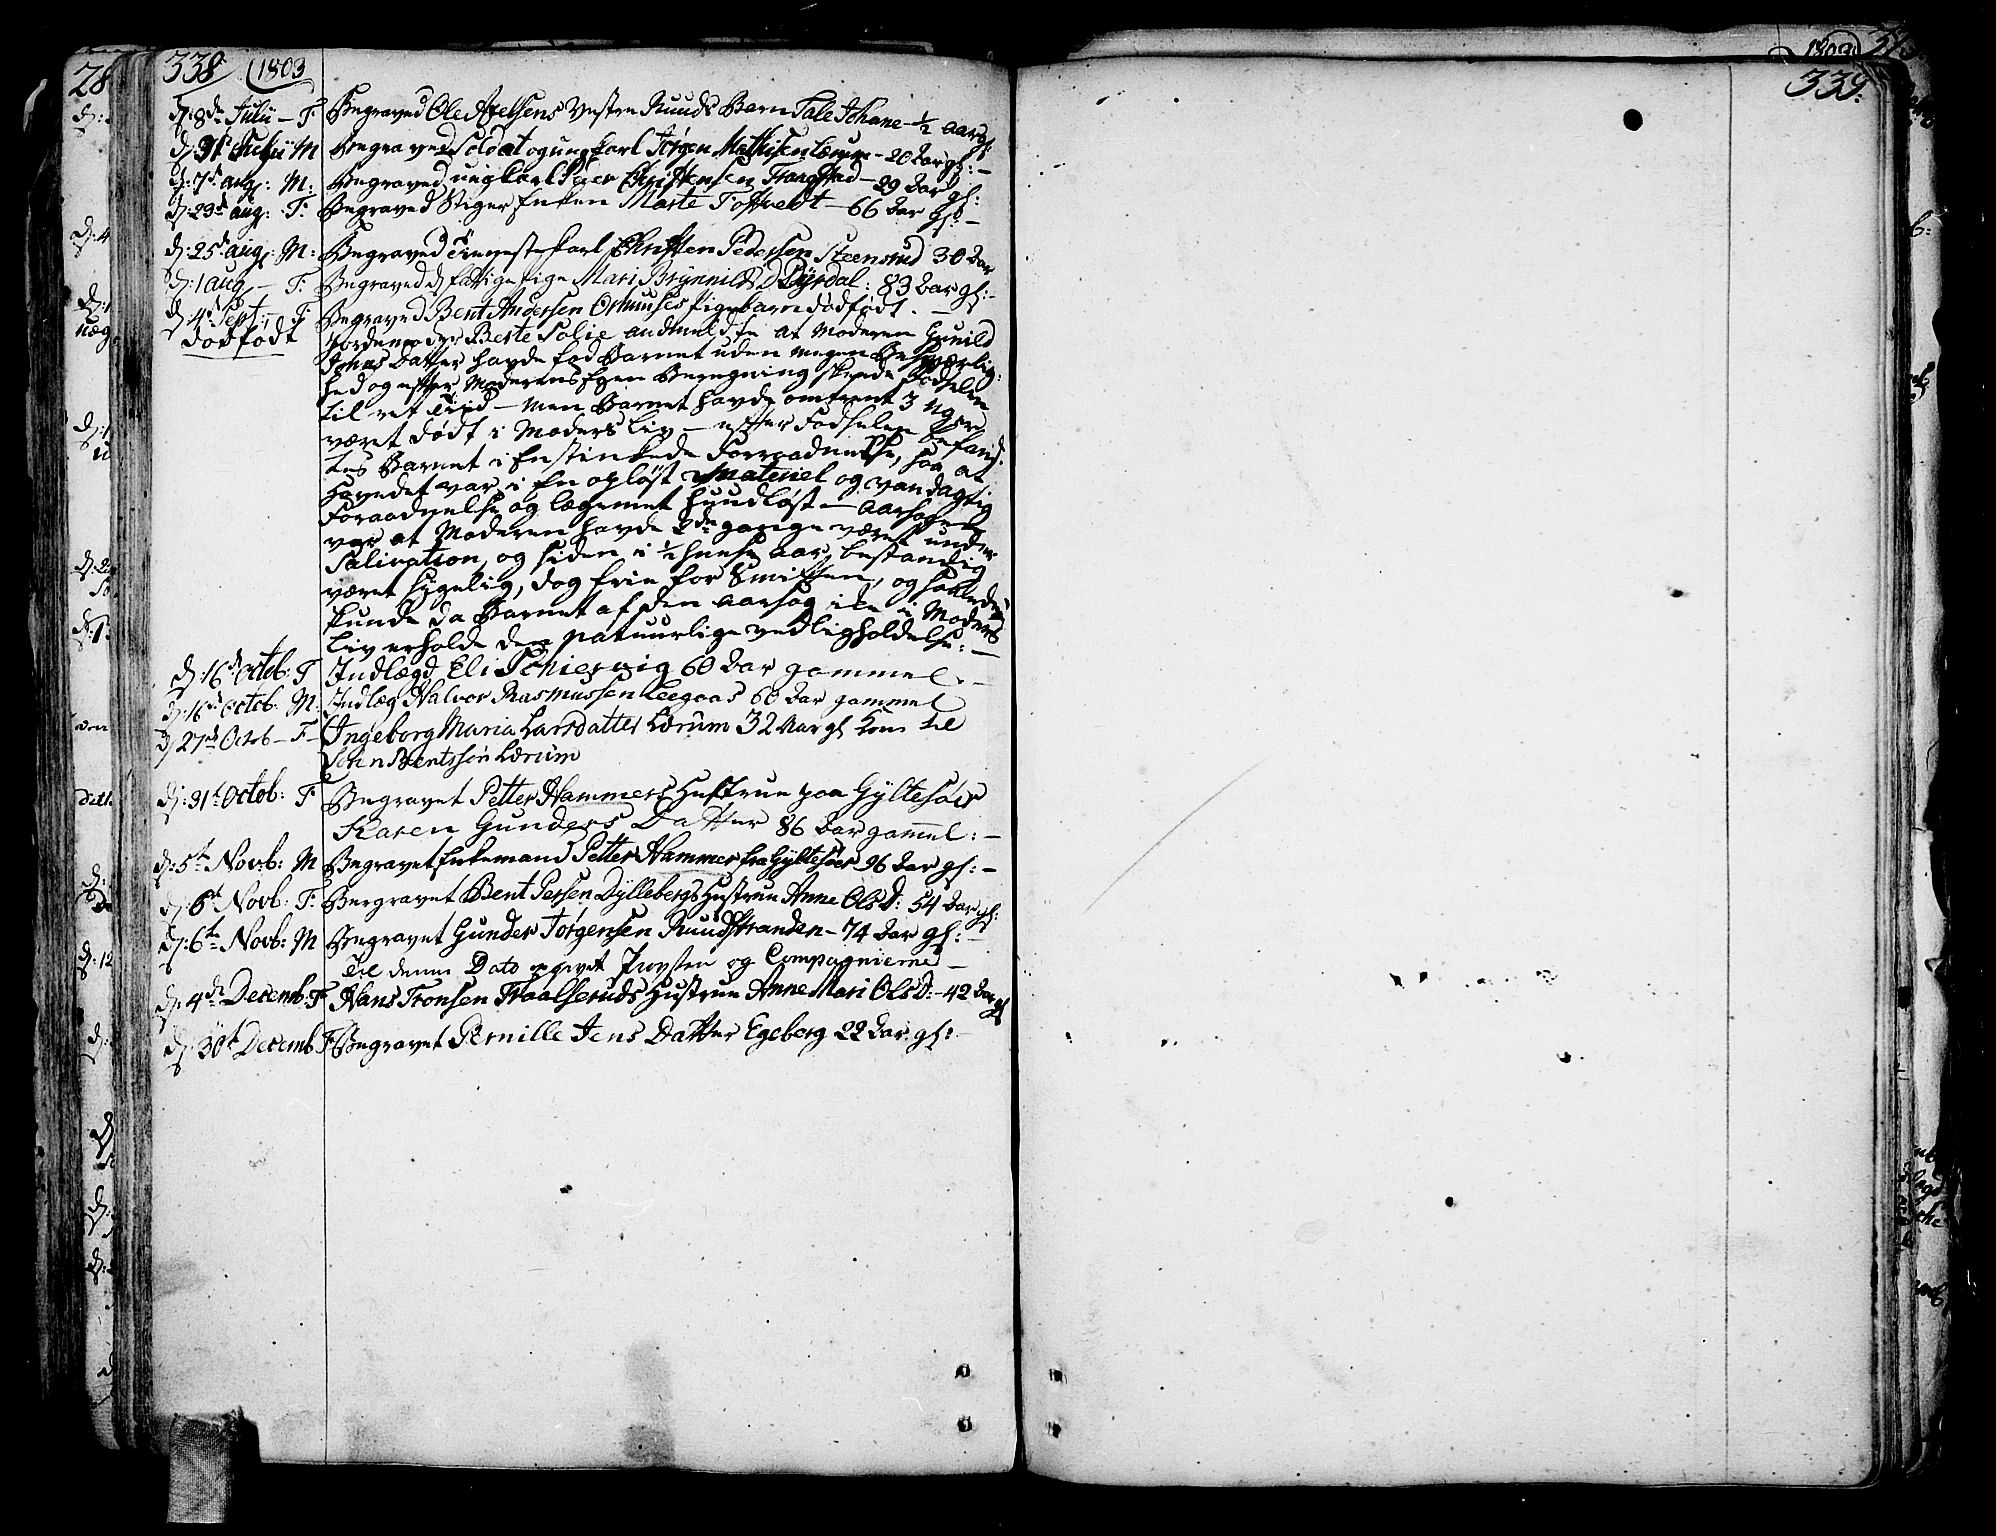 338 1803
d: 8de Julii – F. Begraved Ole Axelsens Vestre Ruuds Barn Tale Johane – ½ aar gl:
d: 31t Julii M Begraved Soldat og ungkarl Jørgen Mathisen Lærum – 20 Aar gl: –
d: 7de aug: M: Begraved ungkarl Peer Christensen Frangstad – 29 Aar gl:
d: 23de aug: F: Begraved Stiger Enken Marte Toftvedt – 66 Aar gl: –
d: 25de aug: M: Begraved Tienestekarl Christen Pedersen Steensrud 30 Aar
d: 1 aug – F: Begraved d fattige Pige Mari Brynnilds D Dyrdal: 83 Aar gl: –
d: 4de Sept: – F Begraved Bent Andersen Ormuuses Pigebarn dødfødt. –
dødfødt Jordemoder Berte Solie andmeldte at Moderen Gunild
Johns Datter havde fød Barnet uden megen Besværlig:
hed og efter Moderens Egen Beregning skeede Fødselen
til ret Tiid – men Barnet havde omtrent 3 Uger
været dødt i Moders Liv – efter Fødselen befand:
tes Barnet i Enstinkede Forraadnelse, saa at
Hovedet var i En opløst Materiel og vandagtig
Foraadnelse og lægemet huudløst – aarsagen
var at Moderen havde 2de gange været under
Salivation, og siden i ½ aar, bestandig
været sygelig, dog frie for Smitten, og saaledes
kunde da Barnet af den aarsag ikke i Moders
Liv erholde den natuurlige vedligholdelse: –
d: 16de Octob: F Indlægd Eli Schiervig 60 Aar gammel. –
d: 16de Octob: M: Indlæg Halvor Rasmussen Leegaas 60 Aar gammel
d 27de Octob – F – Ingeborg Maria Larsdatter Lærum 32 Aar gl Kone til
John Bentssøn Lærum
d: 31t Octob: F Begravet Petter Hammers Hustrue paa Gyltesøer
Karen Gunders Datter 86 Aar gammel: –
d: 5te Novb: M Begravet Enkemand Petter Hammer fra Gyltesøer 96 Aar gl: –
d: 6t Novb: F: Bergravet Bent Persen Dyllebergs Hustrue Anne Ols D: 54 Aar gl:
d: 6te Novb: M Begravet Gunder Jørgensen Ruudstranden – 74 Aar gl: –
Til denne Dato opgivet Provsten og Compagnierne –
d: 4de Decemb: F Hans Tronsen Traalseruds Hustrue Anne Mari Ols D: – 42 Aar gl
d: 30t Decemb F Begravet Pernille Jens Datter Egeberg 22 Aar. gl: –
339.